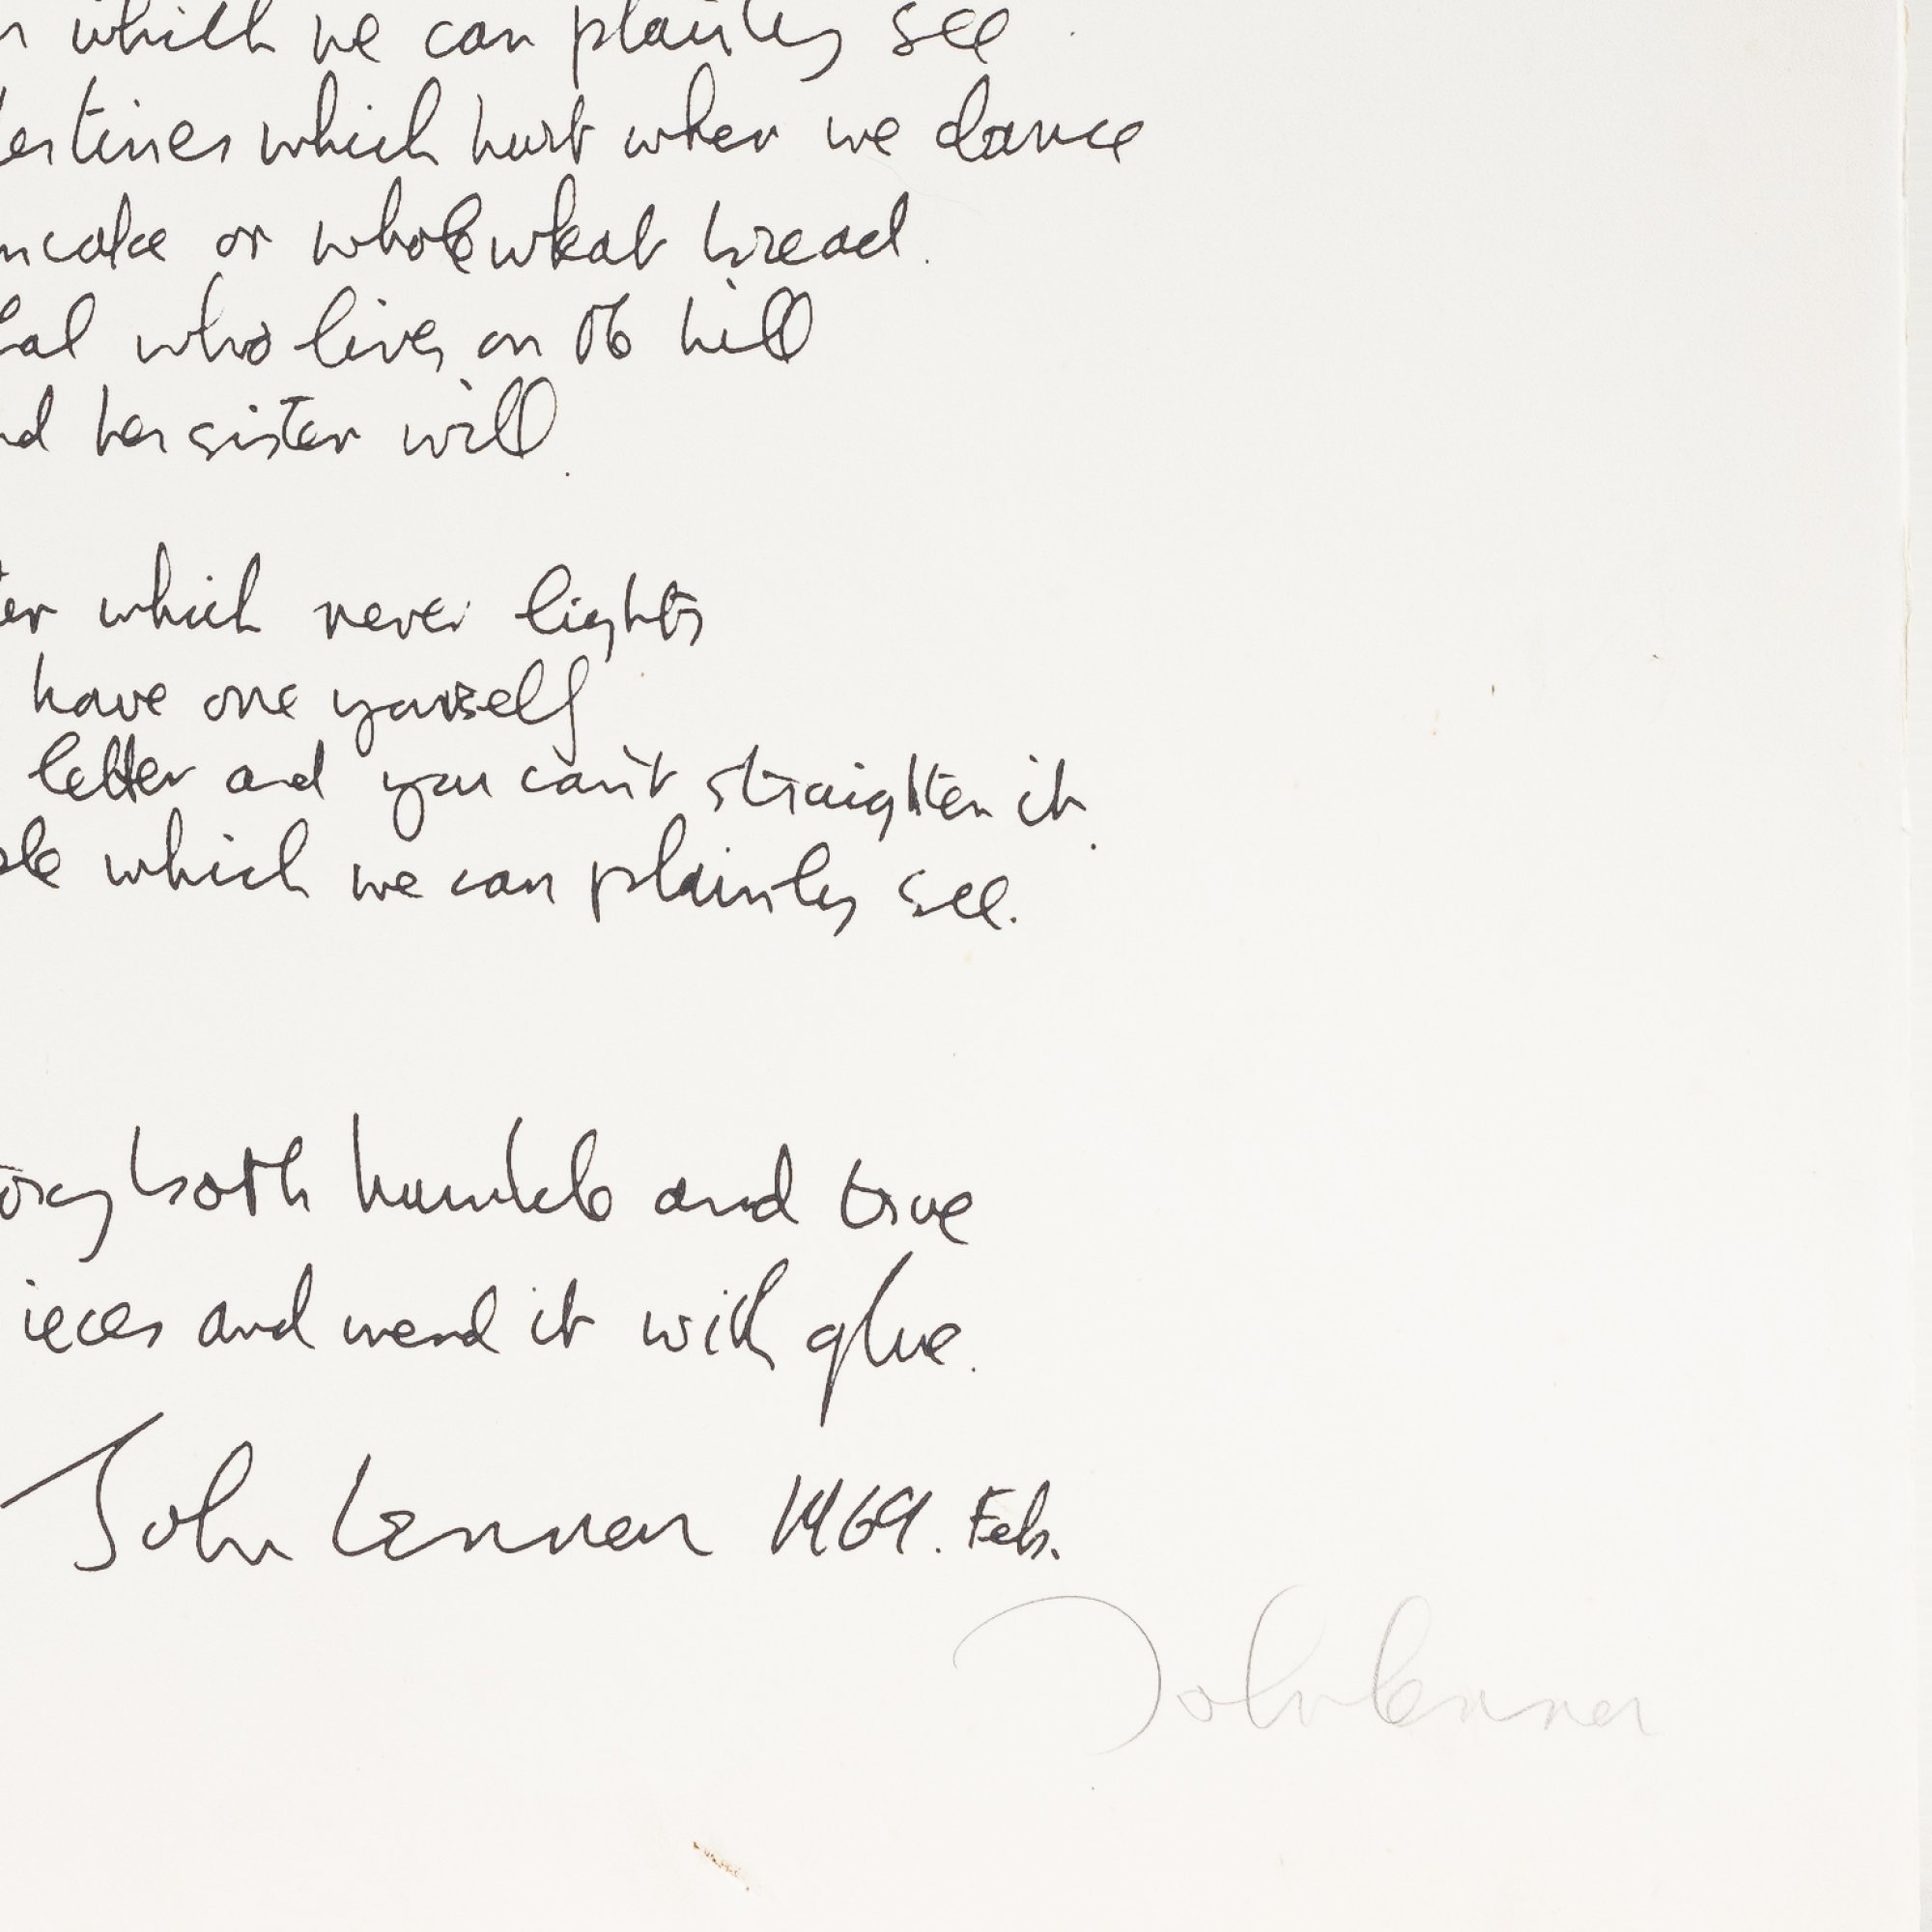 which we can plainly see.
testines which hurt when we dance
ncake or wholewheat bread.
hal who lives on the hill
nd her sister will.
ter which never lights
have one yourself
letter and you can't straighten it.
ole which we can plainly see.
tory both humble and true
ieces and mend it with glue.
John Lennon 1969. Feb.
John Lennon